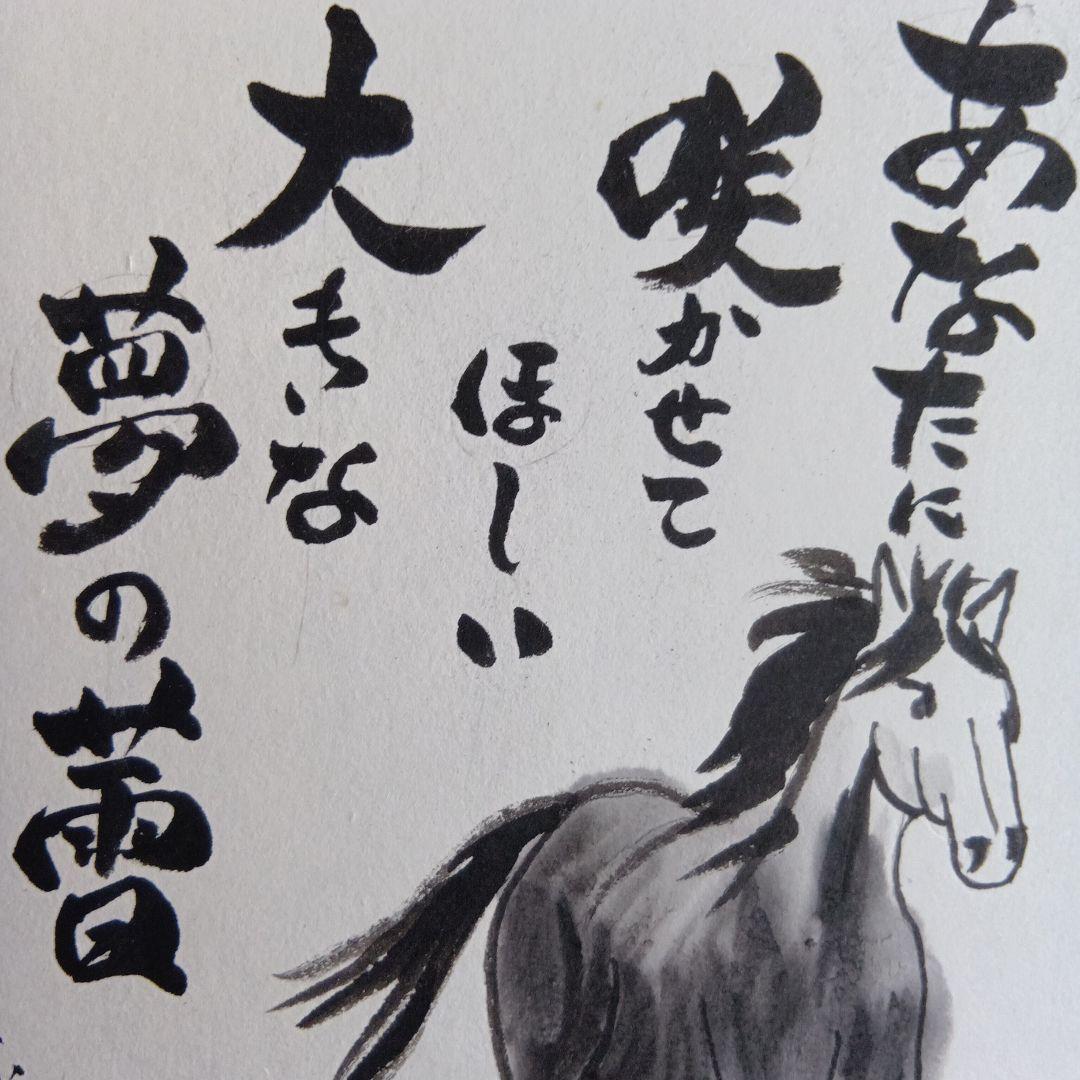 あなたに
咲かせて
ほしい
大きな
夢の蕾